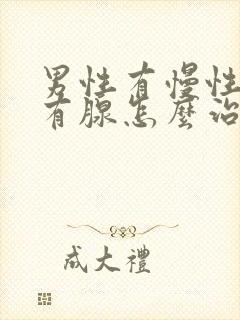 男性有慢性
有腺怎麼治
成大禮